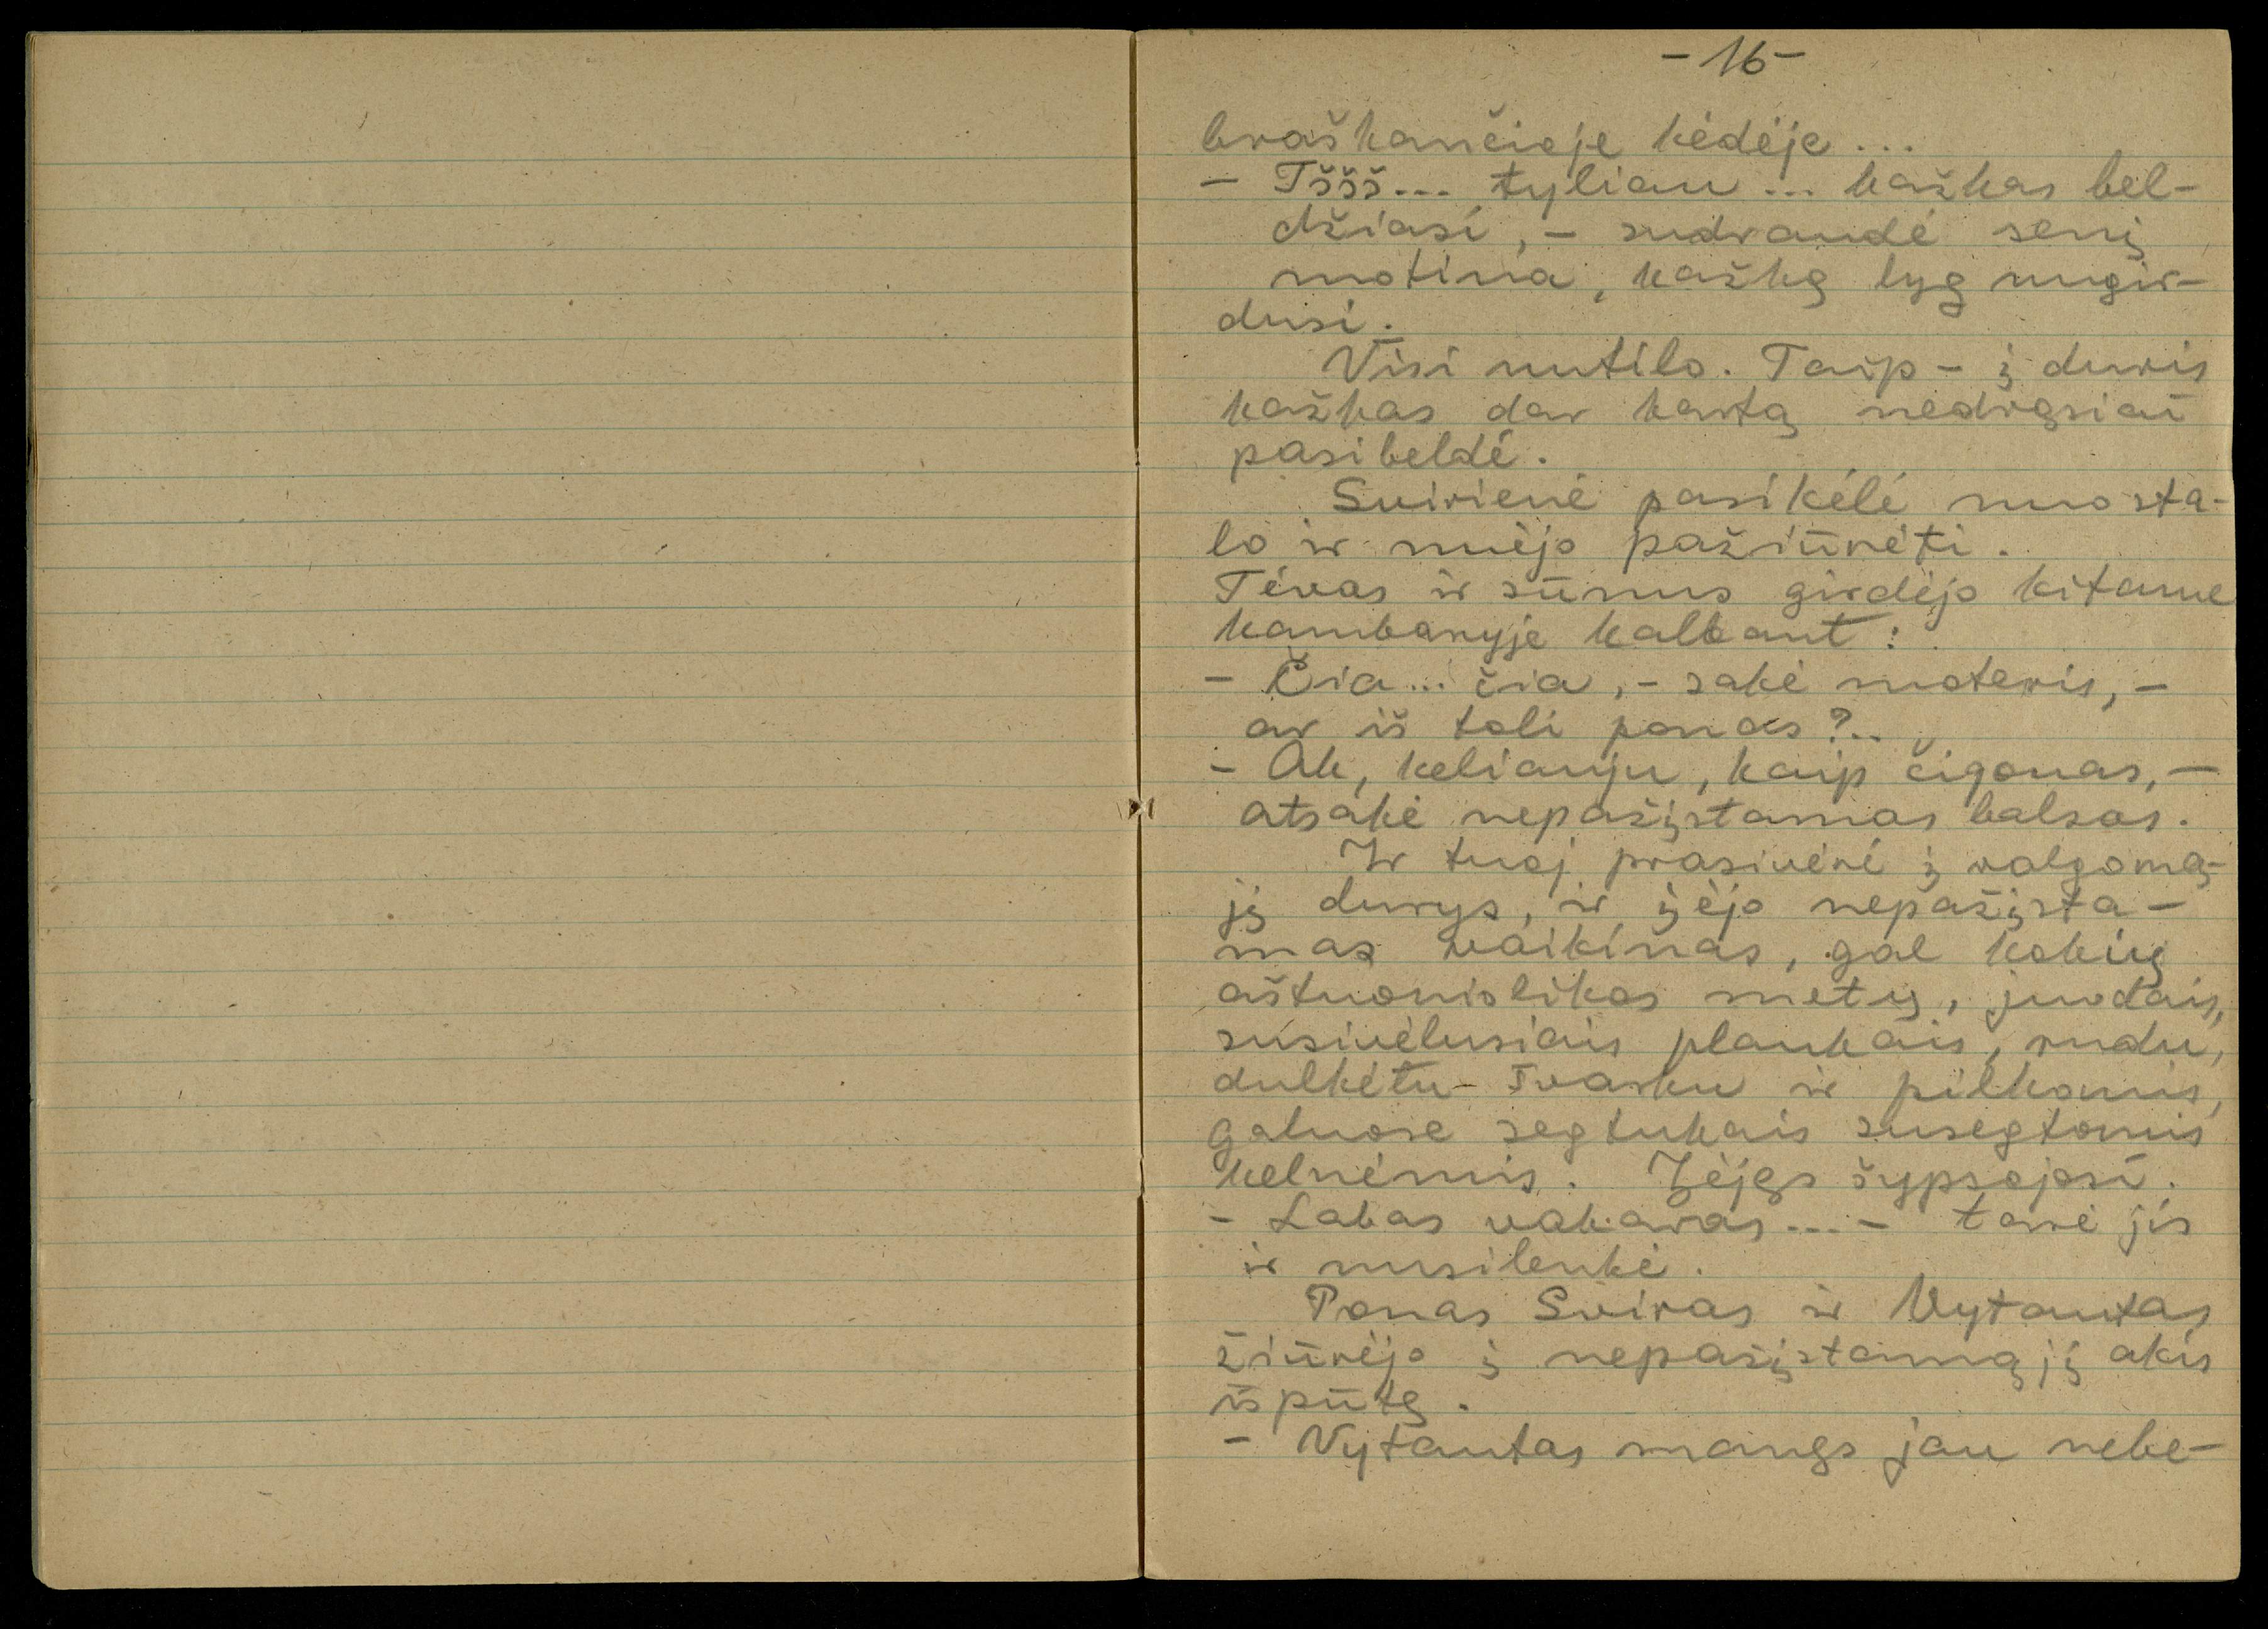 -16-
braškančioje kėdėje...
- Tššš... tyliau... kažkas bel-
džiasi, - sudraudė senį
motina, kažką lyg nugir-
dusi.
Visi nutilo. Taip - į duris
kažkas dar kartą nedrąsiai
pasibeldė.
Svirienė pasikėlė nuo sta-
lo ir nuėjo pažiūrėti.
Tėvas ir sūnus girdėjo kitame
kambaryje kalbant:
- Čia... čia, - sakė moteris, -
ar iš toli ponas?..
- Ak, keliauju, kaip čigonas, -
atsakė nepažįstamas balsas.
Ir tuoj prasivėrė į valgomą-
jį durys, ir įėjo nepažįsta-
mas vaikinas, gal kokių
aštuoniolikos metų, juodais,
susivėlusiais plaukais, rudu,
dulkėtu švarku ir pilkomis,
galuose segtukais susegtomis
kelnėmis. Įėjęs šypsojosi.
- Labas vakaras... - tarė jis
ir nusilenkė.
Ponas Sviras ir Vytautas
žiūrėjo į nepažįstamąjį akis
išpūtę.
- Vytautas manęs jau nebe-